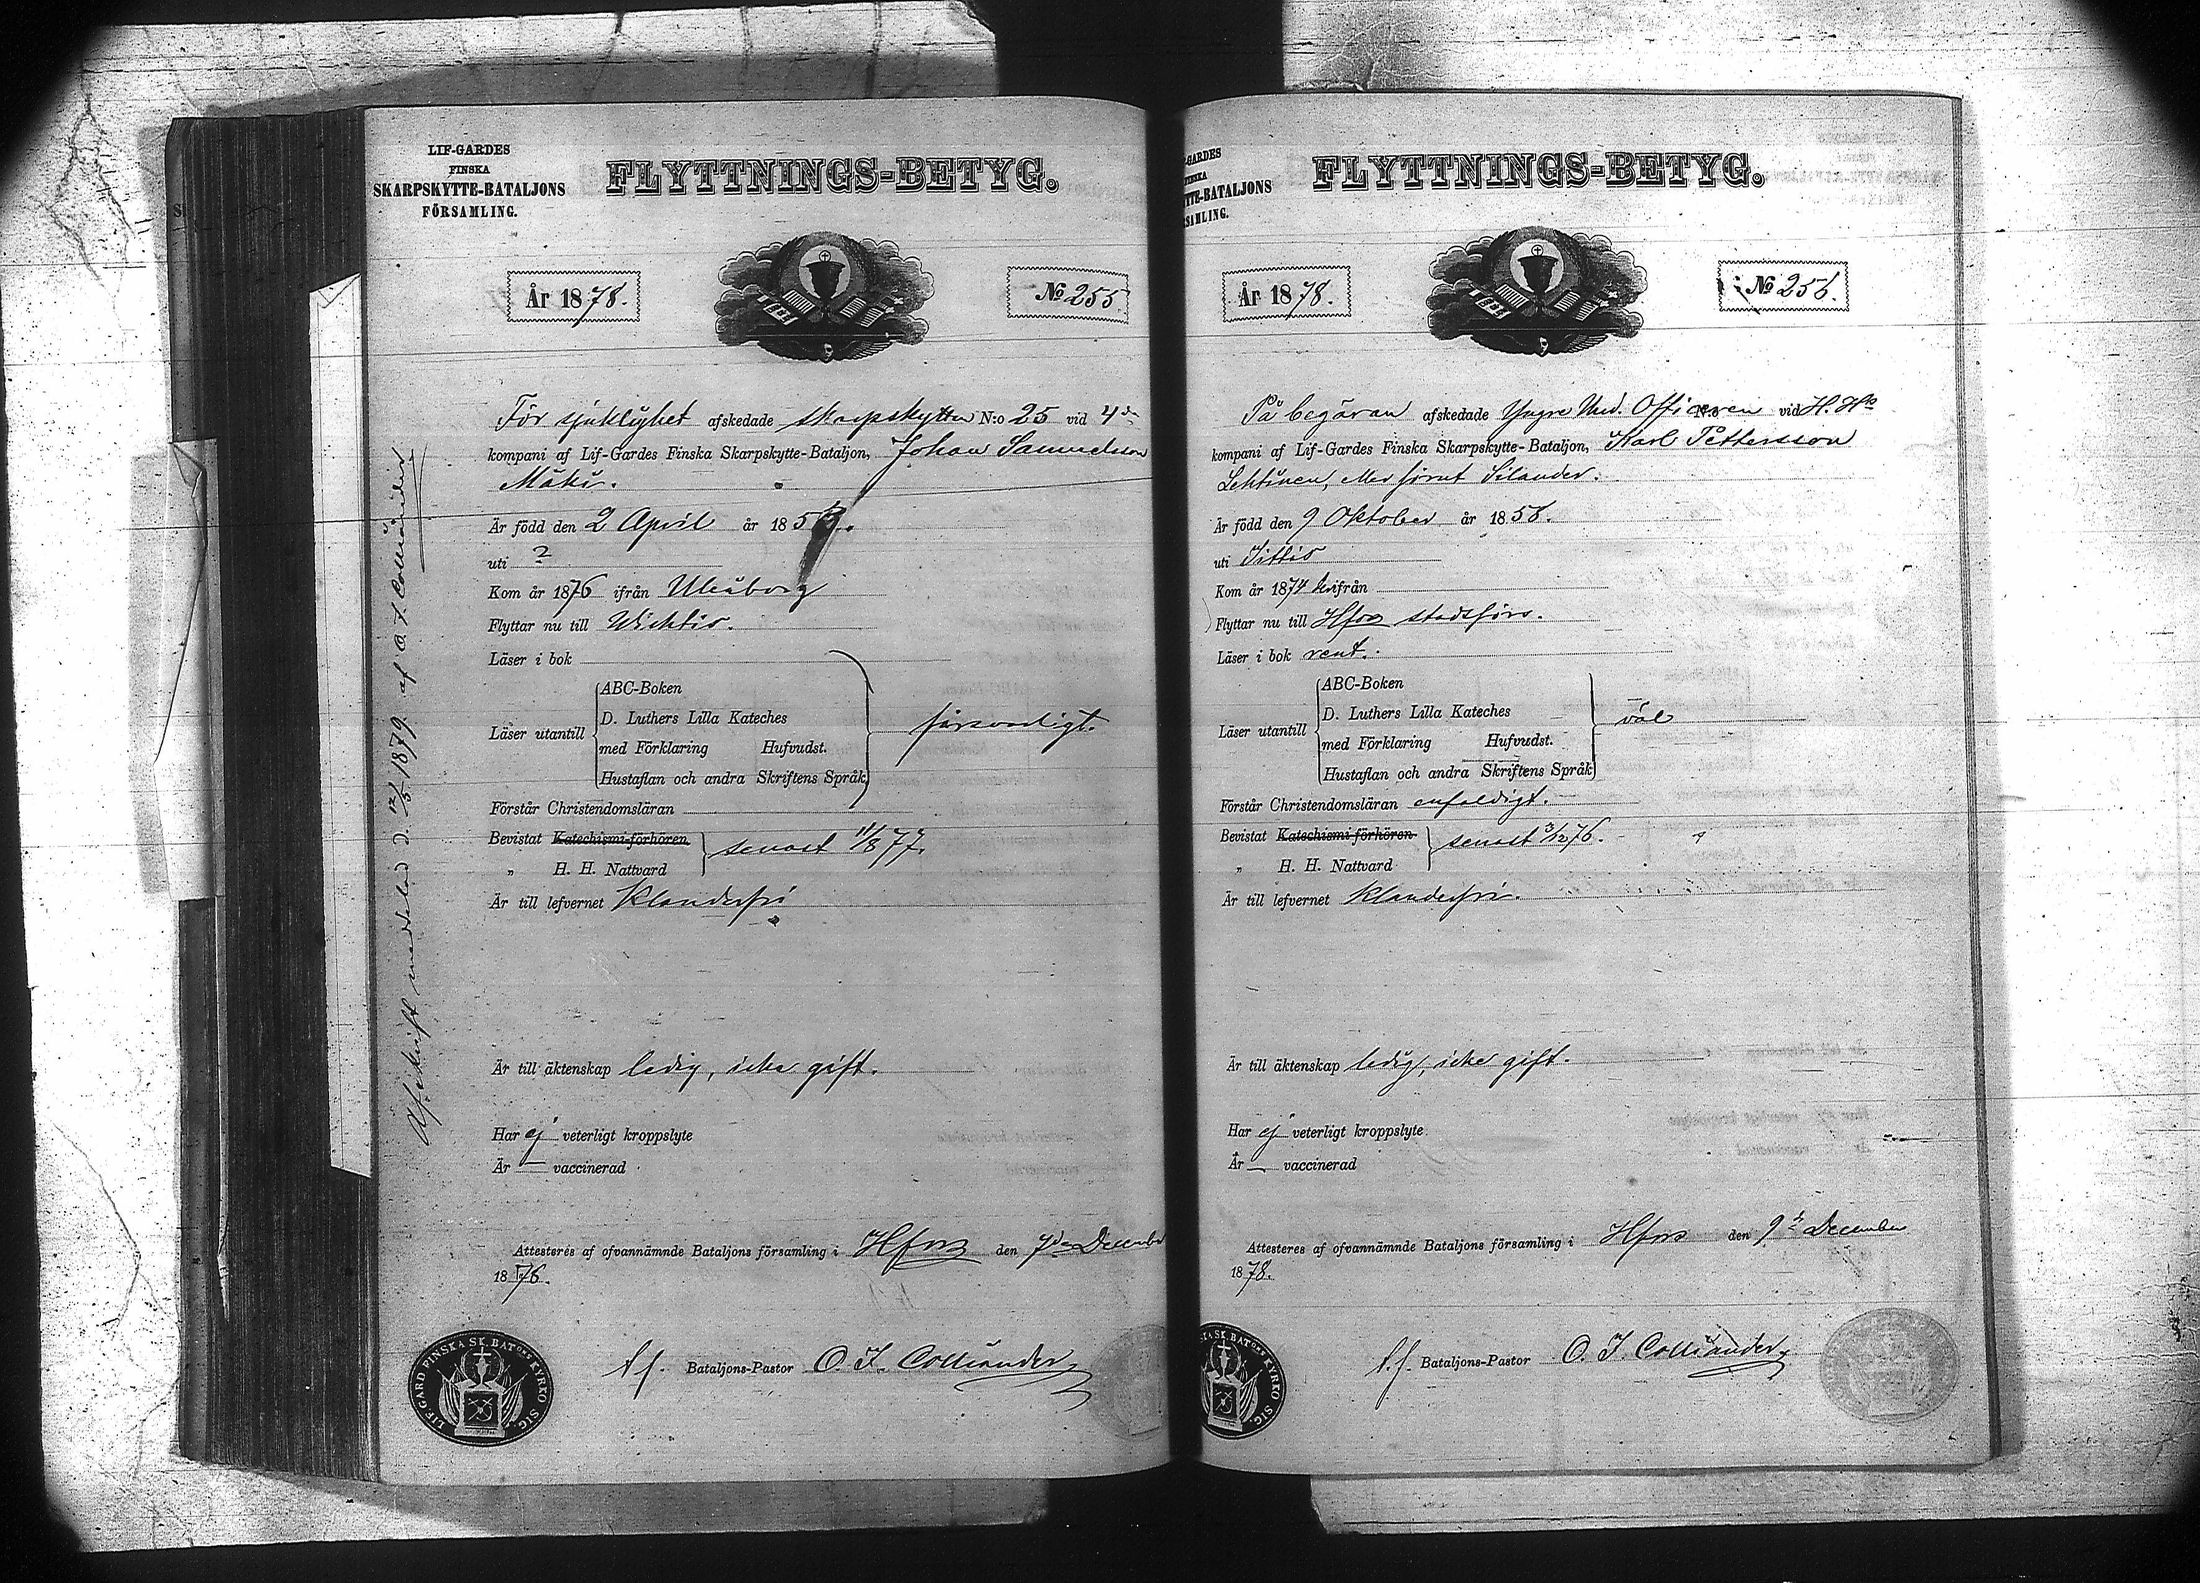 LIF-GARDES
FINSKA
SKARPSKYTTE-BATALJONS
FÖRSAMLING.
FLYTTNINGS-BETYG.
År 1878.
No 255
För sjuklighet afskedade skarpskytten N:o 25 vid 4de
kompani af Lif-Gardes Finska Skarpskytte-Bataljon, Johan Samuelsson
Mäki.
Är född den 2 April år 185
uti ?
Kom år 1876 ifrån Uleåborg
Flyttar nu till Wichtis.
Läser i bok
Läser utantill
ABC-Boken
D. Luthers Lilla Kateches
med Förklaring Hufvudst.
Hustaflan och andra Skriftens Språk
försvarligt.
Förstår Christendomsläran
Bevistat Katechismi-förhören
„ H. H. Nattvard
senast 11/8 77.
Är till lefvernet Klanderfri
Är till äktenskap ledig, icke gift.
Har ej veterligt kroppslyte
Är — vaccinerad
Attesteres af ofvannämnde Bataljons församling i Hfors den 7de December
1878.
t.f. Bataljons-Pastor O. I. Colliander
LIF.GARD.FINSKA SK.BATons KYRKO SIG.
Afskrift meddelad d. 12/5 1879 af O. I. Colliander
-GARDES
FINSKA
TTE-BATALJONS
SAMLING.
FLYTTNINGS-BETYG.
År 1878.
No 256.
På begäran afskedade Yngre Und. Officeren N:o vid H. Hs
kompani af Lif-Gardes Finska Skarpskytte-Bataljon, Karl Pettersson
Lehtinen, eller förut Silander.
Är född den 9 Oktober år 1858.
uti Sittis
Kom år 1874 ifrån
Flyttar nu till Hfors stadsförs.
Läser i bok rent.
Läser utantill
ABC-Boken
D. Luthers Lilla Kateches
med Förklaring Hufvudst.
Hustaflan och andra Skriftens Språk
väl
Förstår Christendomsläran enfaldigt.
Bevistat Katechismi-förhören
„ H. H. Nattvard
senast 3/12 76.
Är till lefvernet Klanderfri.
Är till äktenskap ledig, icke gift.
Har ej veterligt kroppslyte.
Är — vaccinerad
Attesteres af ofvannämnde Bataljons församling i Hfors den 9de December
1878.
t.f. Bataljons-Pastor O. I. Colliander
SKA SK.BATons KYRKO SIG.